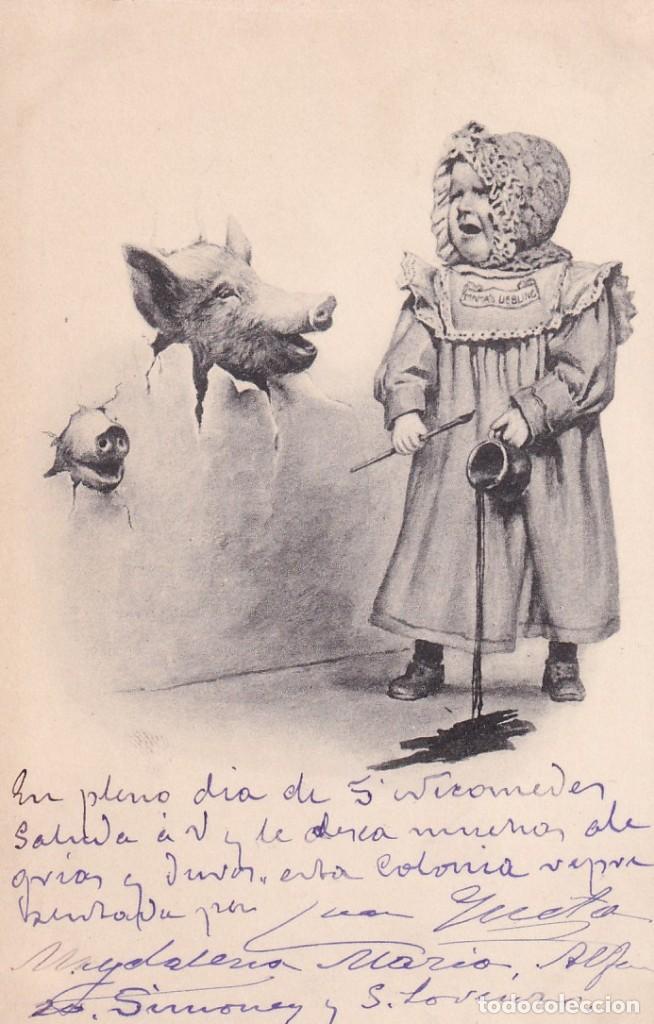 MAMA'S LIEBLING
En pleno dia de S Nicomedes
Saluda á V y le desea muchas ale
grias y duros. esta Colonia repre
sentada por Juan
Magdalena Maria, Alfon
so. Simoney y S.
todocoleccion